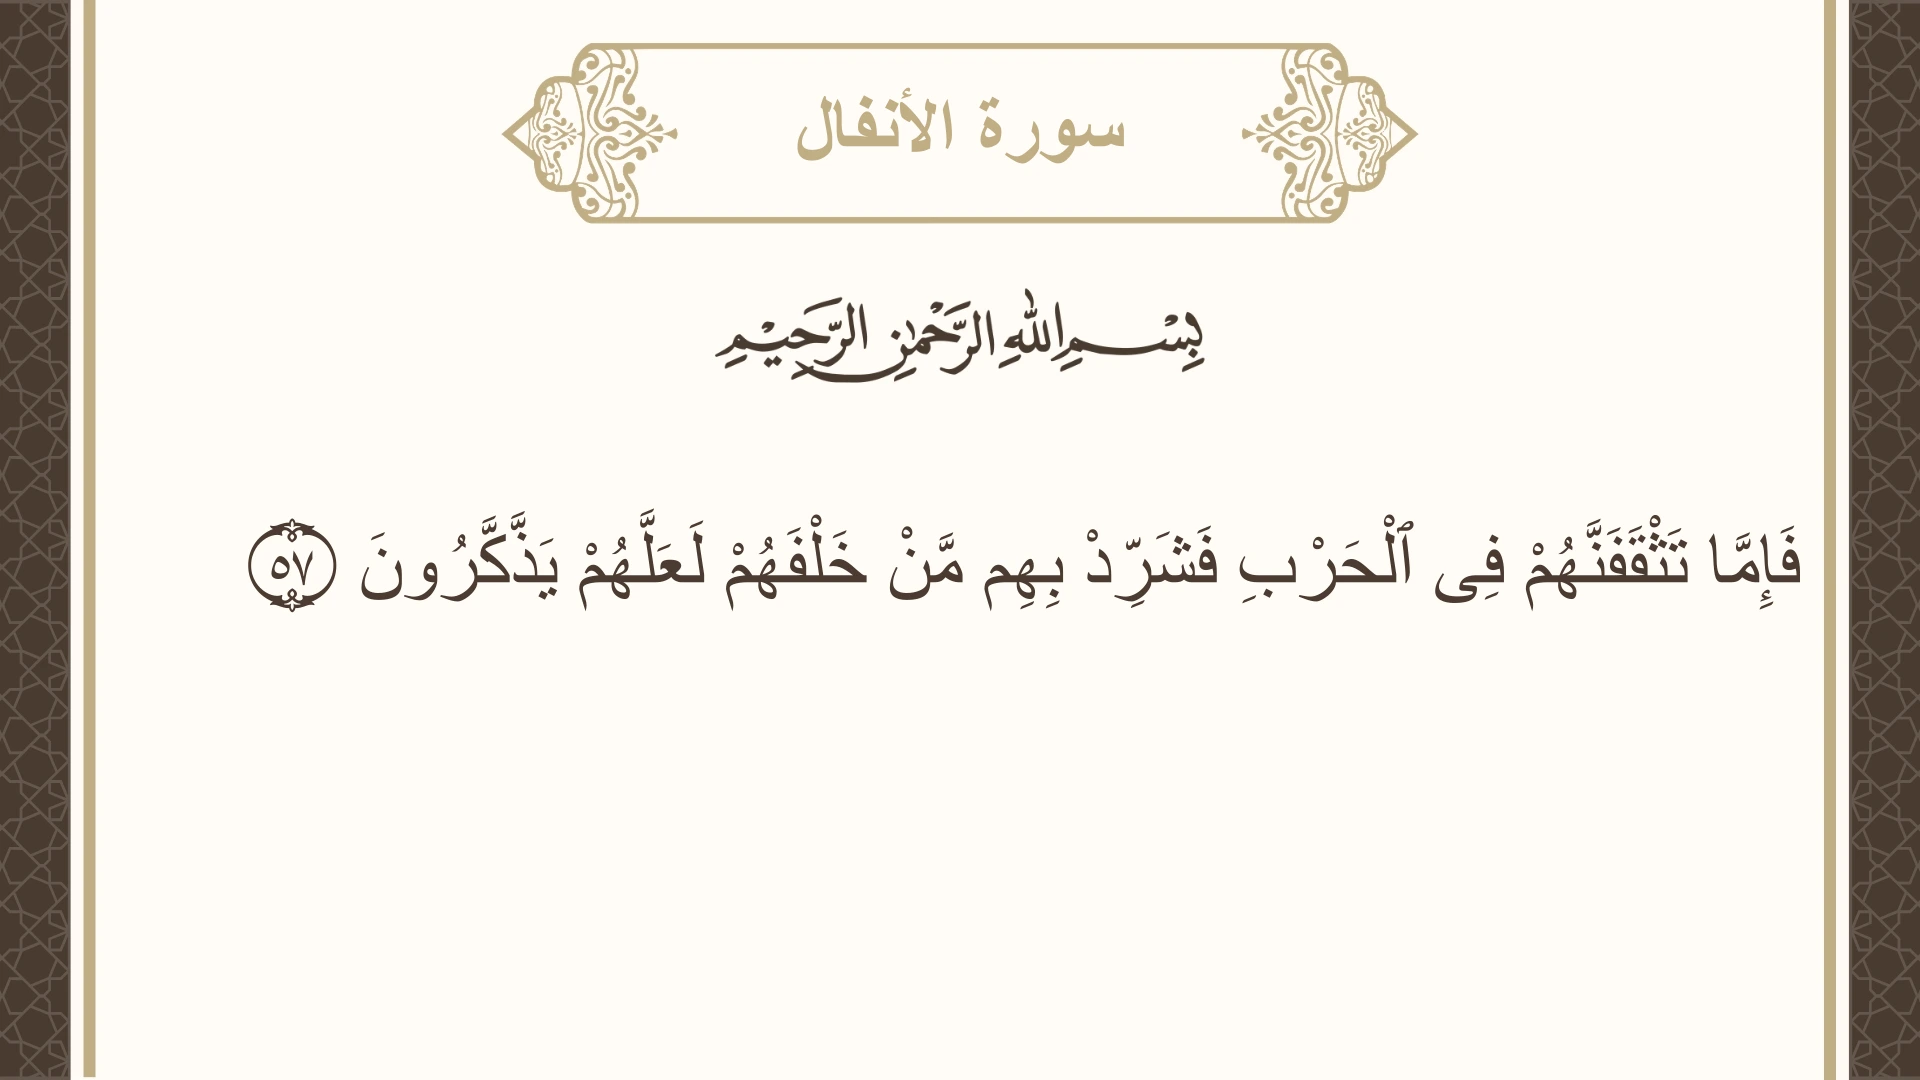 سورة الأنفال
بِسْمِ اللهِ الرَّحْمٰنِ الرَّحِيْمِ
فَإِمَّا تَثْقَفَنَّهُمْ فِى ٱلْحَرْبِ فَشَرِّدْ بِهِم مَّنْ خَلْفَهُمْ لَعَلَّهُمْ يَذَّكَّرُونَ ٥٧